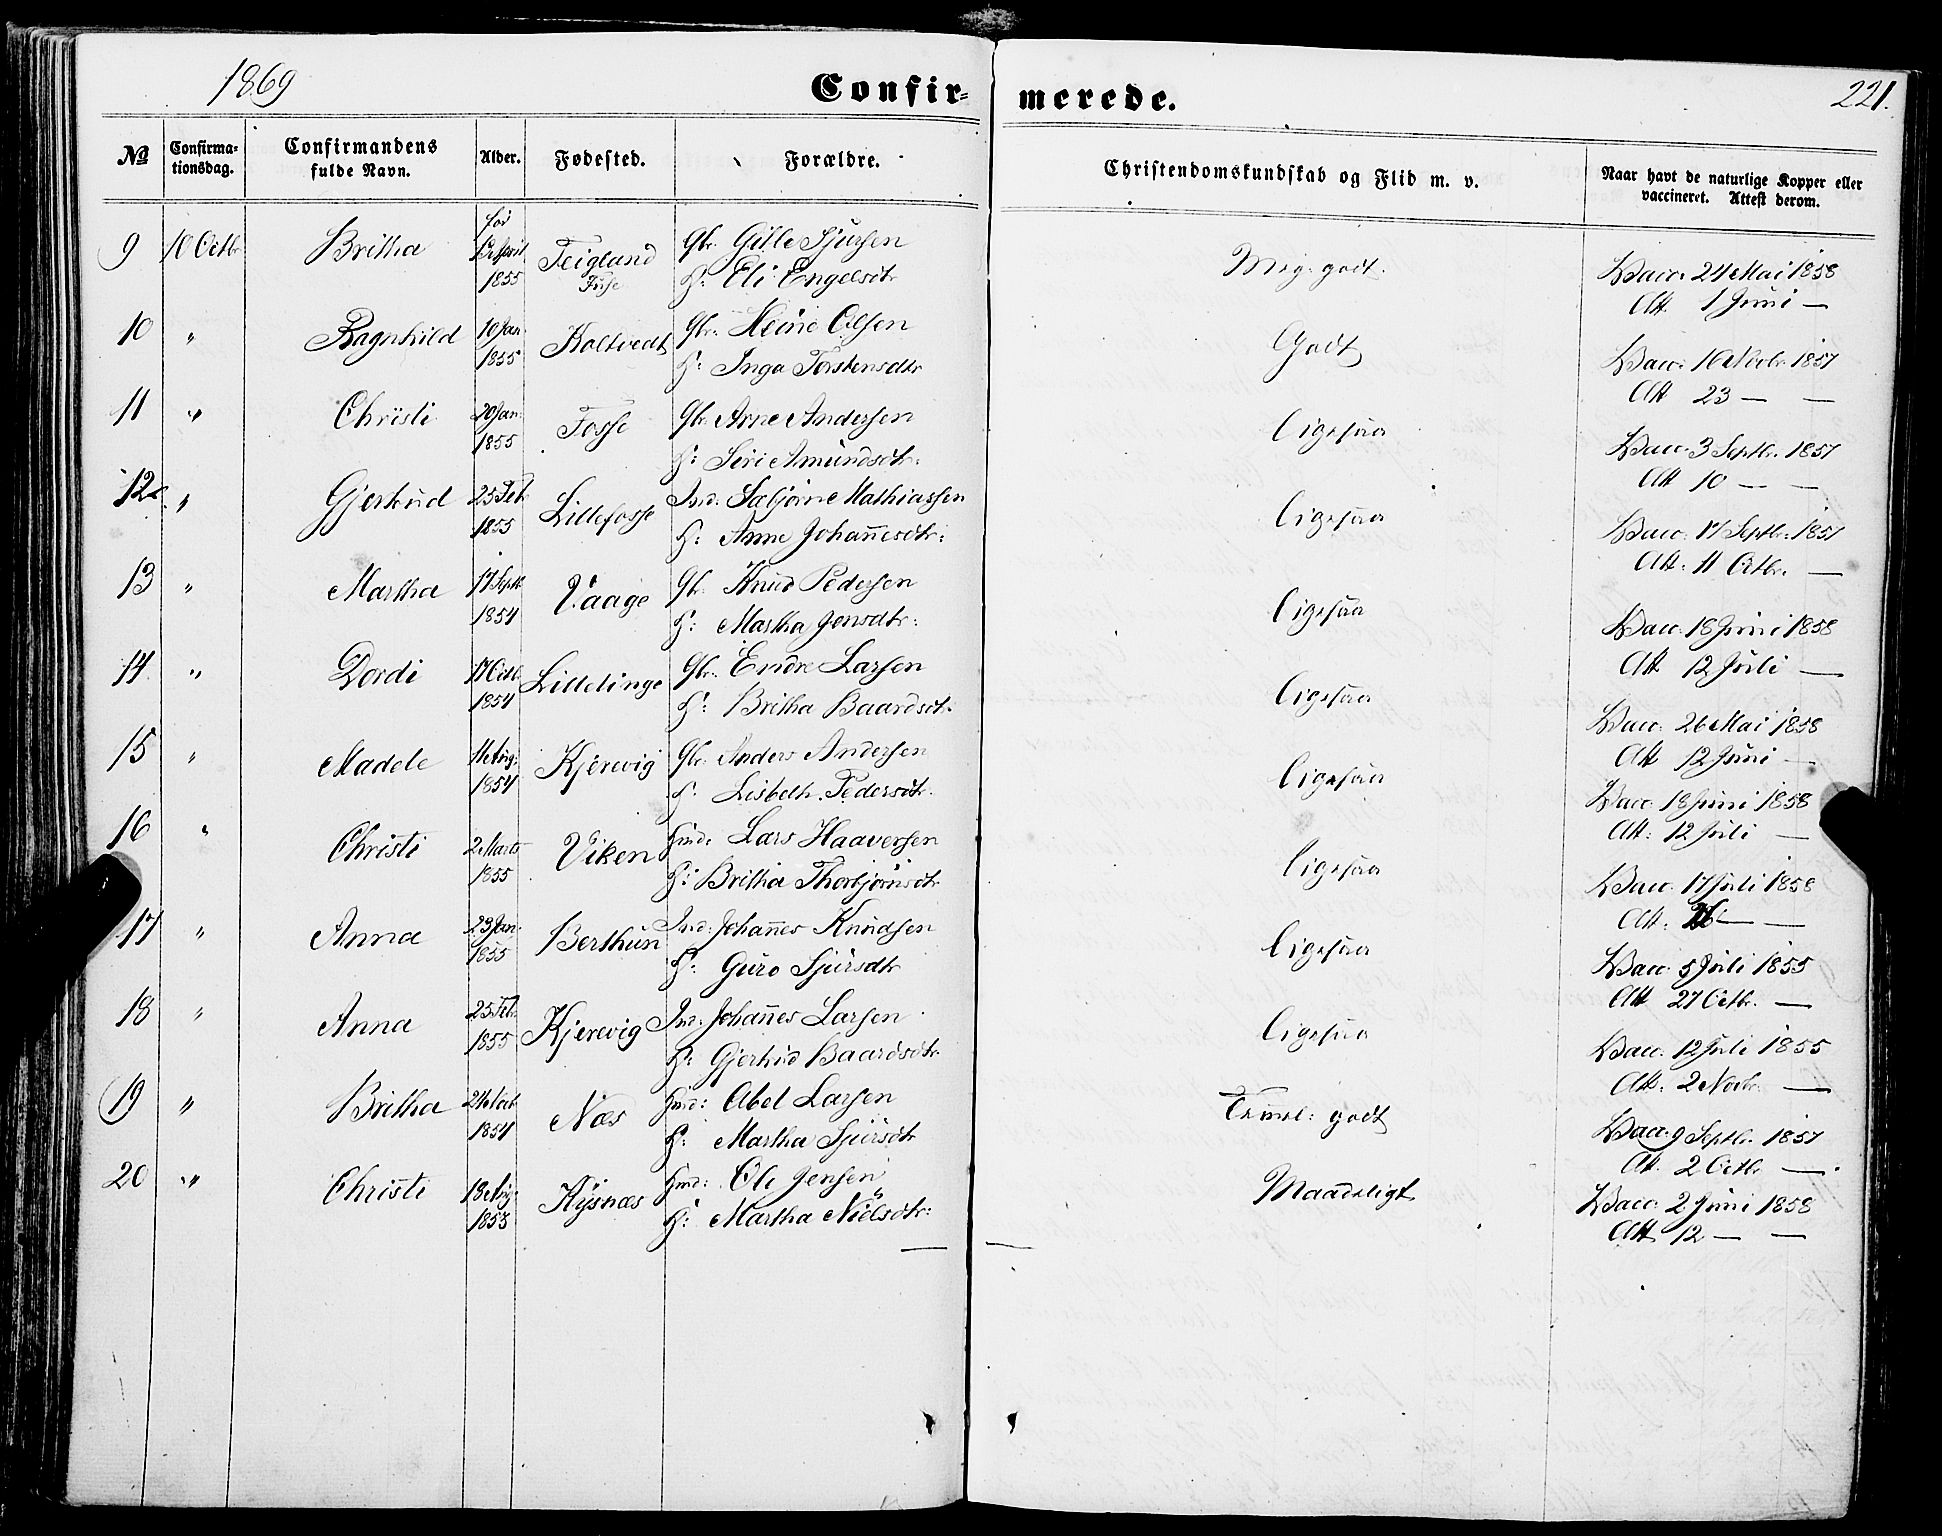 1869
Confir- merede.
221.
No
Confirma-
tionsdag.
Confirmandens
fulde Navn.
Alder.
Fødested.
Forældre.
Christendomskundskab og Flid m. v.
Naar havt de naturlige Kopper eller
vaccineret. Attest derom.
9 10 Octbr Britha før April 1855 Teigland Fuse Gbr. Gille Sjursen
H: Eli Engelsdtr
Meg. godt. Vacc. 24 Mai 1858
Att. 1 Juni —
10 " Ragnhild 10 Jan. 1855 Koltvedt Gbr. Heine Olsen
H: Inga Torstensdtr
Godt Vacc. 16 Novbr. 1857
Att 23 — —
11 " Christi 20 Jan. 1855 Fosse Gbr. Arne Andersen
H: Siri Amundsdtr:
Ligesaa Vacc. 3 Septbr. 1857
Att 10 — —
12 " Gjertrud 25 Feb. 1855 Lillefosse Ind: Sæbjørne Mathiassen
H: Anne Johannesdtr:
Ligesaa Vacc. 17 Septbr. 1857
Att. 11 Octbr. —
13 " Martha 17 Septb. 1854 Vaage Gbr. Knud Pedersen
H: Martha Jensdtr:
Ligesaa Vacc. 18 Juni 1858
Att. 12 Juli —
14. " Dordi 17 Octb. 1854 Lillelinge Gbr. Endre Larsen
H: Britha Baardsdtr.
Ligesaa Vacc. 26 Mai 1858
Att 12 Juni —
15 " Madele Aug: 1854 Kjerevig Gbr. Anders Andersen
H: Lisbeth Pedersdtr.
Ligesaa Vacc. 18 Juni 1858
Att: 12 Juli —
16 " Christi 2 Marts 1855 Viken Hmd: Lars Haaversen
H: Britha Thorbjørnsdtr
Ligesaa Vacc. 17 Juli 1858
Att. 26 — —
17 " Anna 23 Jan. 1855 Berthun Ind: Johannes Knudsen
H: Guro Sjursdtr
Ligesaa Vacc. 5 Juli 1855
Att 27 Octbr. —
18 " Anna 25 Feb. 1855 Kjerevig Ind: Johannes Larsen
H: Gjertrud Baardsdtr.
Ligesaa Vacc. 12 Juli 1855
Att: 2 Novbr. —
19 " Britha 1854 Næs Hmd: Abel Larsen
H: Martha Sjursdtr
Temml: godt Vacc. 9 Septbr. 1857
Att. 2 Octbr —
20 " Christi 18 Aug. 1853 Kysnæs Hmd: Ole Jensen
H: Martha Nielsdtr:
Maadeligt Vacc. 2 Juni 1858
Att 12 — —